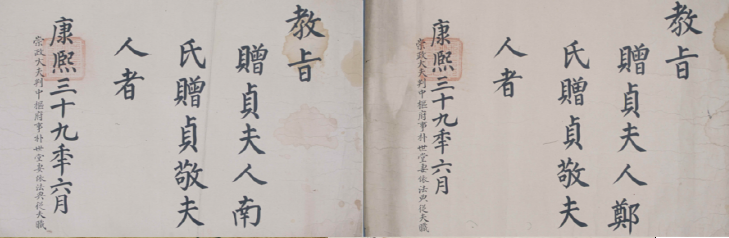 教旨
贈貞夫人南
氏贈貞敬夫
人者
康熙三十九年六月
崇政大夫判中樞府事朴世堂妻依法典從夫職
教旨
贈貞夫人鄭
氏贈貞敬夫
人者
康熙三十九年六月
崇政大夫判中樞府事朴世堂妻依法典從夫職